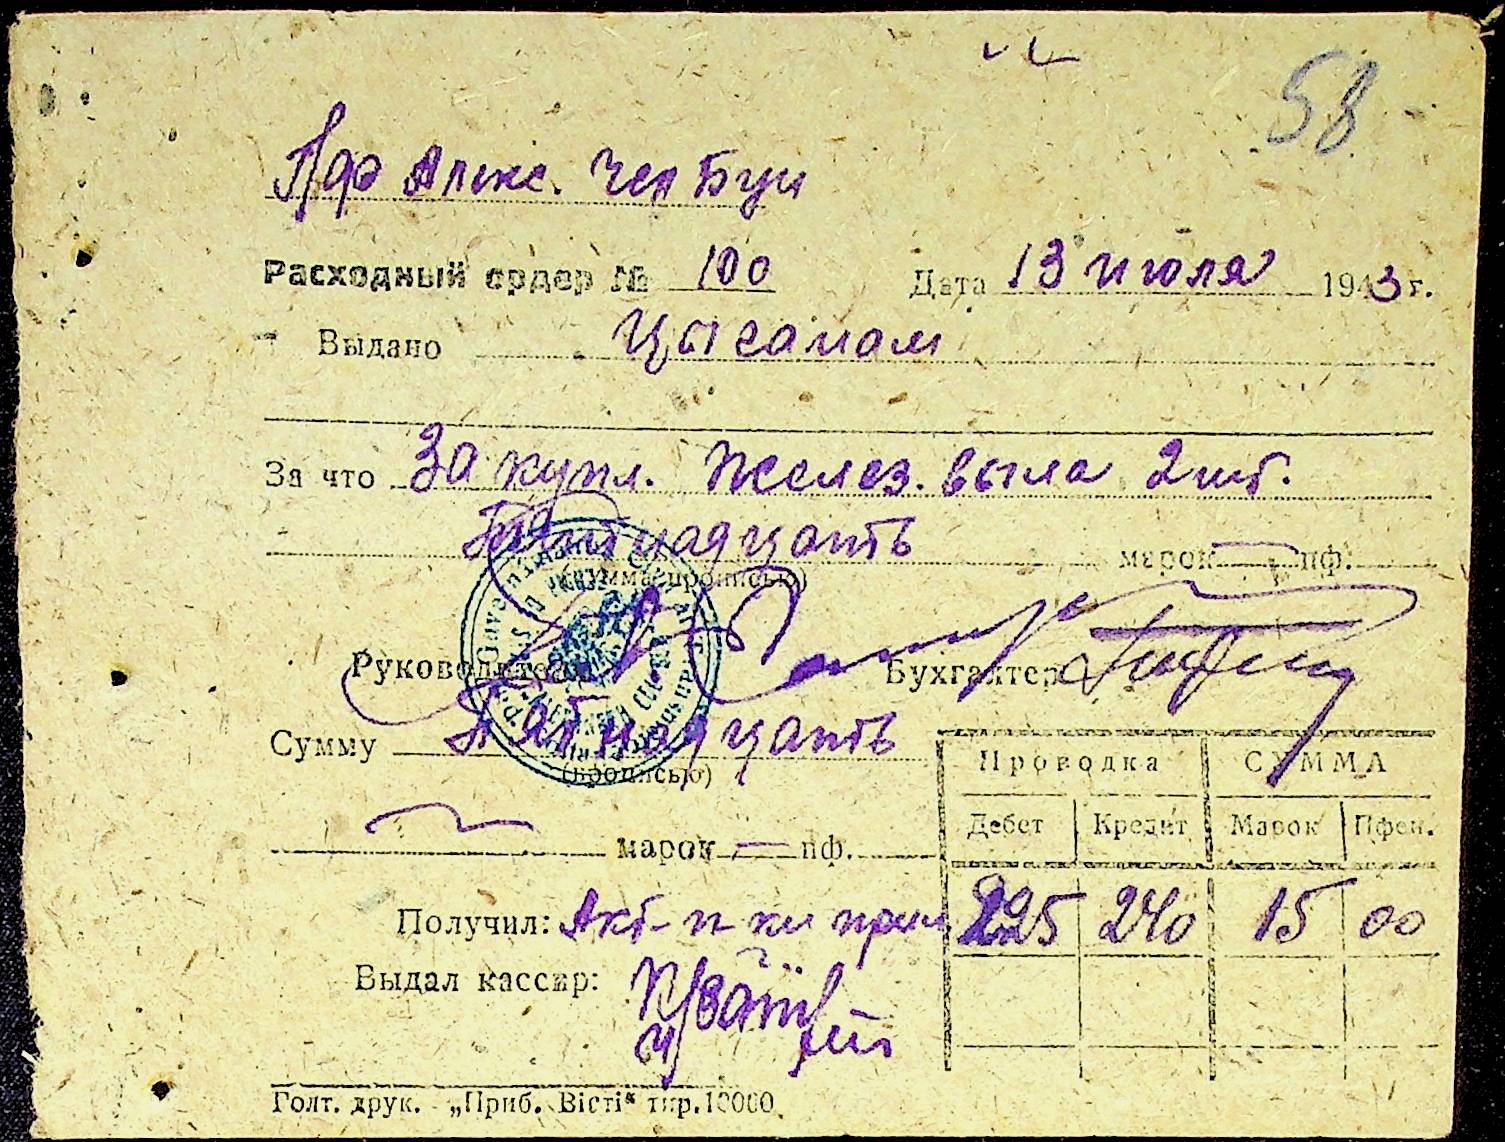 58
Пфэ Алекс. Чер Буи
Расходный ордер № 100 Дата 13 июля 1943 г.
Выдано Цысанам
За что За купл. желез. выла 2 шт.
Пятнадцать марок — пф.
(сумма прописью)
Руководитель Бухгалтер
Сумму Пятнадцать
(прописью)
марок — пф.
Проводка СУММА
Дебет Кредит Марок Пфен.
225 240 15 00
Получил: Акт- п-ки прил
Выдал кассир:
Голт. друк. „Приб. Вісті“ тир. 10000